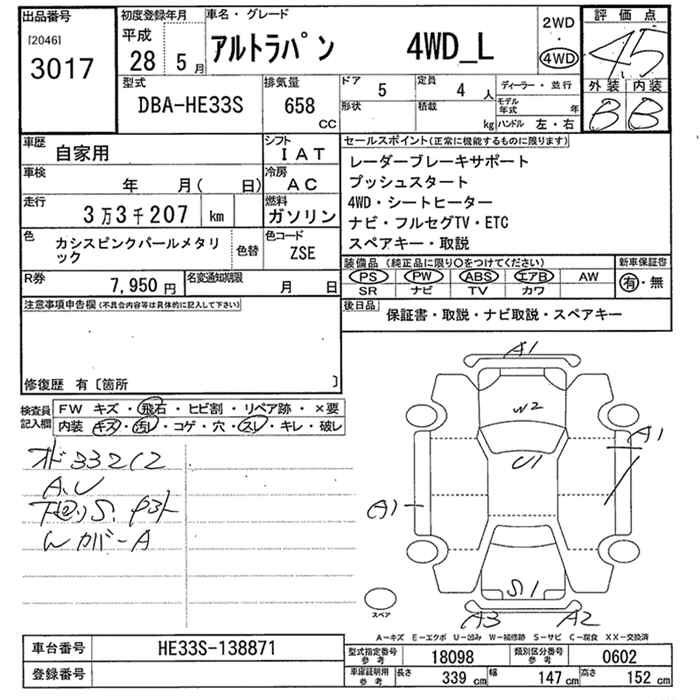 出品番号
[2046]
3017
初度登録年月
平成
28 5月
車名・グレード
アルトラパン 4WD_L
2WD
・
4WD
評価点
45
外装 内装
B B
型式
DBA-HE33S
排気量
658
CC
ドア 5
定員 4人
形状
積載 kg
ディーラー・並行
モデル年式 年
ハンドル 左・右
車歴
自家用
シフト
IAT
車検
年 月( 日)
冷房
AC
走行
3万3千207 km
燃料
ガソリン
色
カシスピンクパールメタリック
色替
色コード
ZSE
R券
7,950円
名変通知期限
月 日
セールスポイント(正常に機能するものに限ります)
レーダーブレーキサポート
プッシュスタート
4WD・シートヒーター
ナビ・フルセグTV・ETC
スペアキー・取説
装備品(純正品に限り○をつけてください)
新車保証書
PS PW ABS エアB AW
SR ナビ TV カワ
有・無
後日品
保証書・取説・ナビ取説・スペアキー
注意事項申告欄(不具合内容等は具体的に記入して下さい)
修復歴 有〔箇所 〕
検査員記入欄
FW キズ・飛石・ヒビ割・リペア跡・×要
内装 キズ・汚レ・コゲ・穴・スレ・キレ・破レ
33212
A.U
カバーA
A1
W2
U1
A1
A1
S1
A3 A2
スペア
A-キズ E-エクボ U-凹み W-補修跡 S-サビ C-腐食 XX-交換済
車台番号
HE33S-138871
登録番号
型式指定番号
参考
18098
類別区分番号
参考
0602
車庫証明用
参考
長さ 339 cm
幅 147 cm
高さ 152 cm